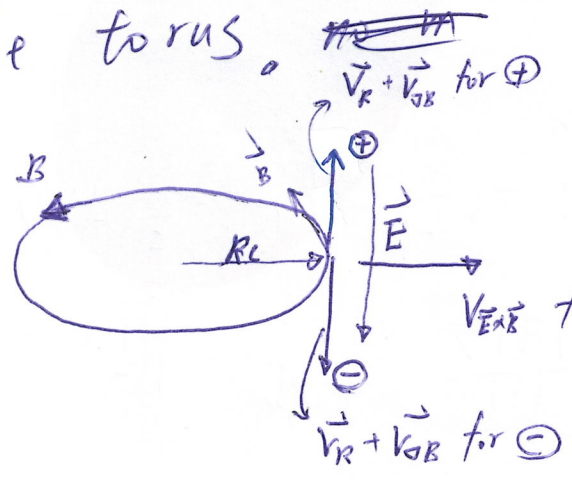 e torus.
V⃗_R + V⃗_∇B for ⊕
B
B⃗
⊕
E⃗
Rc
V_E⃗×B⃗
⊖
V⃗_R + V⃗_∇B for ⊖